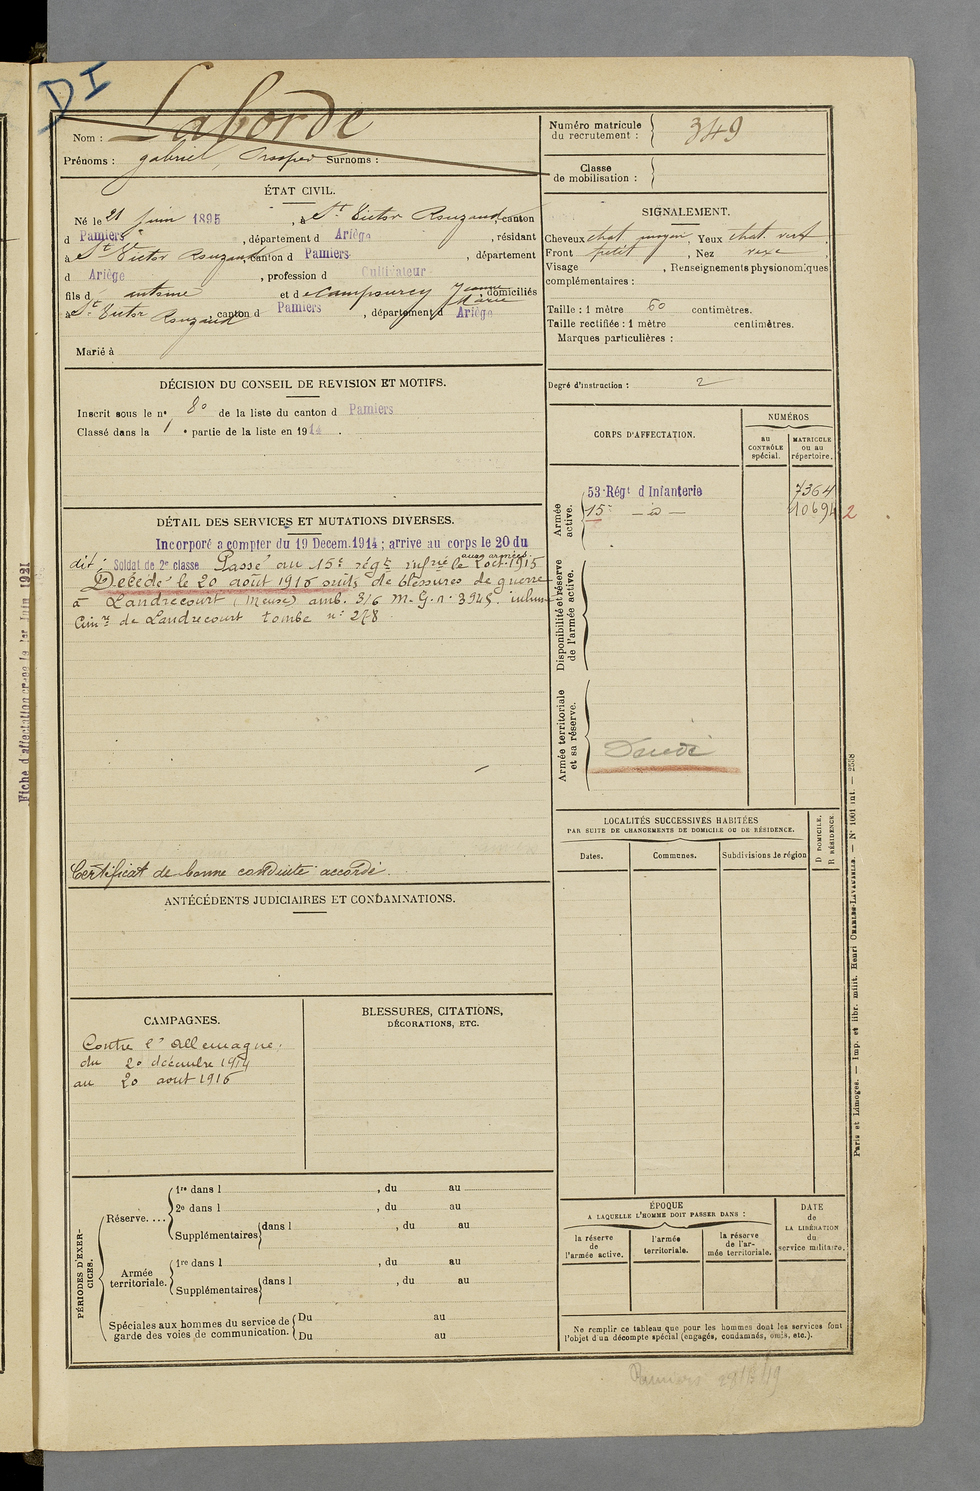 DI
Nom : Laborde
Prénoms : gabriel, Prosper Surnoms :
Numéro matricule du recrutement : 349
Classe de mobilisation :
ÉTAT CIVIL.
Né le 21 juin 1895, à St Victor Rouzaud, canton
d Pamiers, département d Ariège, résidant
à St Victor Rouzaud canton d Pamiers, département
d Ariège, profession d Cultivateur
fils d antoine et de Campourcy Jeanne Marie, domiciliés
à St Victor Rouzaud, canton d Pamiers, département d Ariège
Marié à
SIGNALEMENT.
Cheveux chat. moyen, Yeux chat. vert
Front petit, Nez vexe
Visage , Renseignements physionomiques
complémentaires :
Taille : 1 mètre 60 centimètres.
Taille rectifiée : 1 mètre centimètres.
Marques particulières :
Degré d'instruction : 2
DÉCISION DU CONSEIL DE REVISION ET MOTIFS.
Inscrit sous le n° 80 de la liste du canton d Pamiers
Classé dans la 1 e partie de la liste en 1914.
DÉTAIL DES SERVICES ET MUTATIONS DIVERSES.
Incorporé a compter du 19 Decem. 1914 ; arrive au corps le 20 du
dit ; Soldat de 2e classe Passé au 15e régt infrie le oct. 1915
aux armées
Décédé le 20 août 1916 suite de blessures de guerre
à Landrecourt (Meuse) amb. 3/6 M. G. n° 3945. inhum
Cimre de Landrecourt tombe n° 278
Certificat de bonne conduite accordé.
CORPS D'AFFECTATION.
NUMÉROS
AU CONTRÔLE spécial.
MATRICULE OU AU répertoire.
Armée active.
53 Régt d Infanterie 7364
15e — d° — 10694 2
Disponibilité et réserve de l'armée active.
Armée territoriale et sa réserve.
Décédé
LOCALITÉS SUCCESSIVES HABITÉES
PAR SUITE DE CHANGEMENTS DE DOMICILE OU DE RÉSIDENCE.
Dates.
Communes.
Subdivisions de région
D DOMICILE, R RÉSIDENCE.
ANTÉCÉDENTS JUDICIAIRES ET CONDAMNATIONS.
CAMPAGNES.
Contre l'Allemagne,
du 20 décembre 1914
au 20 août 1916
BLESSURES, CITATIONS,
DÉCORATIONS, ETC.
PÉRIODES D'EXERCICES.
Réserve....
1re dans l , du au
2e dans l , du au
Supplémentaires dans l , du au
Armée territoriale.
1re dans l , du au
Supplémentaires dans l , du au
Spéciales aux hommes du service de garde des voies de communication.
Du au
Du au
ÉPOQUE
A LAQUELLE L'HOMME DOIT PASSER DANS :
la réserve de l'armée active.
l'armée territoriale.
la réserve de l'armée territoriale.
DATE de LA LIBÉRATION du service militaire.
Ne remplir ce tableau que pour les hommes dont les services font
l'objet d'un décompte spécial (engagés, condamnés, omis, etc.).
Paris et Limoges. — Imp. et libr. milit. Henri CHARLES-LAVAUZELLE. — N° 1001 int. — 2558
Pamiers